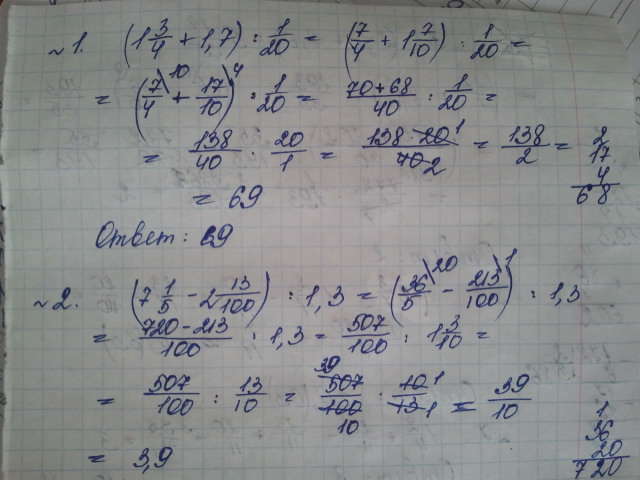 ~1. (1 3/4 + 1,7) : 1/20 = (7/4 + 1 7/10) : 1/20 =
= (7/4 \10 + 17/10 \4) : 1/20 = 70+68/40 : 1/20 =
= 138/40 · 20/1 = 138·20 1/40 2 = 138/2 =
= 69
2
17
4
68
Ответ: 69
~2. (7 1/5 - 2 13/100) : 1,3 = (36/5 \20 - 213/100 \1) : 1,3
= 720-213/100 : 1,3 = 507/100 : 1 3/10 =
= 507/100 : 13/10 = 39 507/100 10 · 10 1/13 1 = 39/10
= 3,9
1
36
20
720